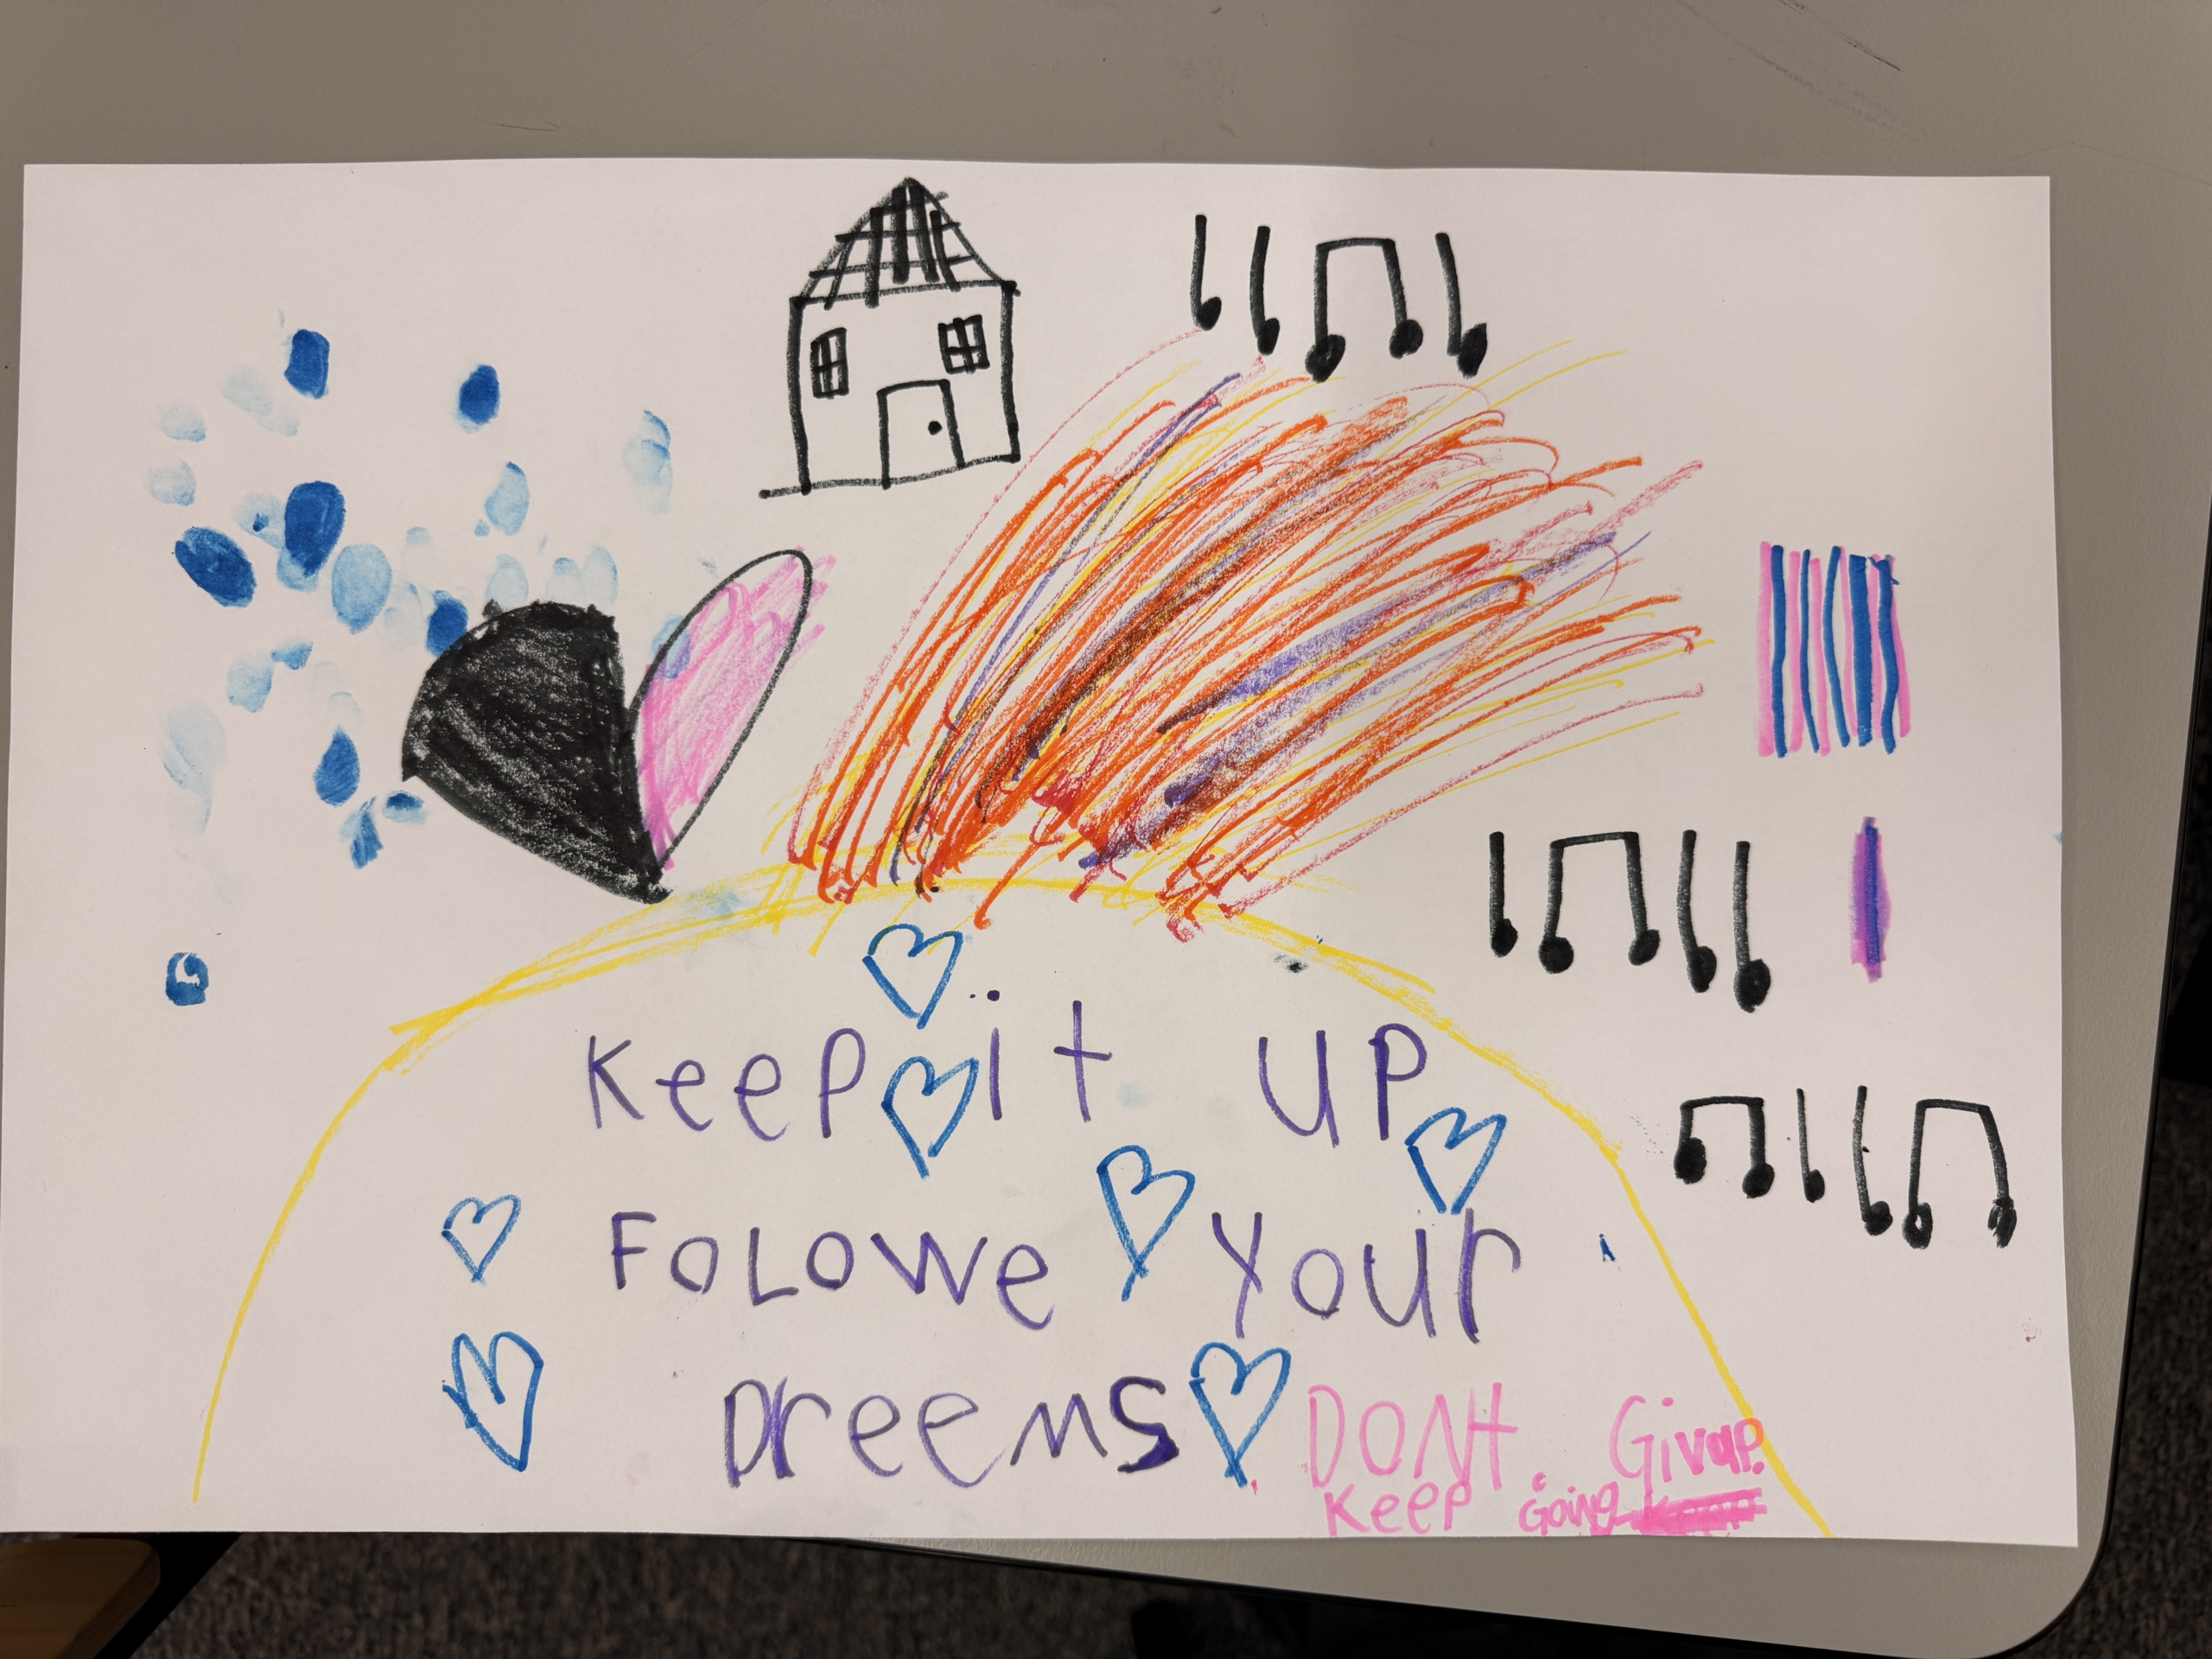 Keep it up
Folowe your
Dreems
DONt Givup.
Keep Going